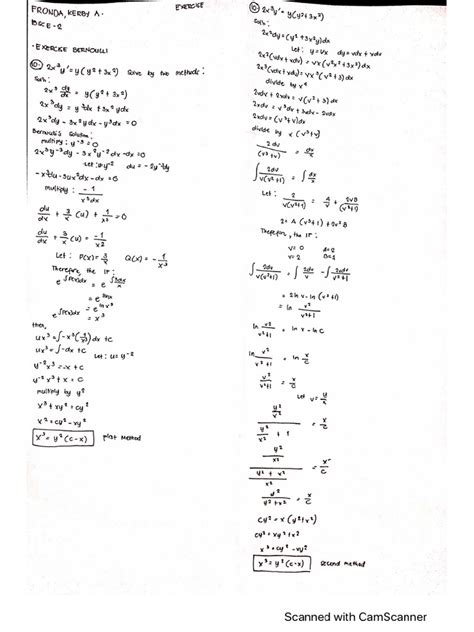 FRONDA, KERBY A.
EXERCISE
BSCE-2
· EXERCISE BERNOULLI
10.) 2x³y' = y(y²+3x²) Solve by two methods:
Soln:
2x³ dy/dx = y(y²+3x²)
2x³dy = y³dx + 3x²ydx
2x³dy - 3x²ydx - y³dx = 0
Bernoulli's Solution:
multiply: y⁻³ = 0
2x³y⁻³dy - 3x²y⁻²dx - dx = 0
Let: u=y⁻² du = -2y⁻³dy
-x³du - 3ux²dx - dx = 0
multiply: -1/x³dx
du/dx + 3/x (u) + 1/x³ = 0
du/dx + 3/x (u) = -1/x³
Let: P(x) = 3/x Q(x) = -1/x³
Therefore, the IF:
e^∫P(x)dx = e^∫3dx/x
= e^3lnx
e^∫P(x)dx = e^lnx³
= x³
then,
ux³ = ∫-x³(1/x³)dx +c
ux³ = ∫-dx +c Let: u = y⁻²
y⁻²x³ = -x + c
y⁻²x³ + x = c
multiply by y²
x³ + xy² = cy²
x³ = cy² - xy²
x³ = y²(c-x) first method
10.) 2x³y' = y(y²+3x²)
Soln:
2x³dy = (y³+3x²y)dx
Let: y = vx dy = vdx + xdv
2x³(vdx + xdv) = vx(v²x²+3x²)dx
2x³(vdx + xdv) = vx³(v²+3)dx
divide by x³
2vdx + 2xdv = v(v²+3)dx
2xdv = v³dx + 3vdx - 2vdx
2xdv = (v³+v)dx
divide by x(v³+v)
2dv/(v³+v) = dx/x
∫ 2dv/v(v²+1) = ∫ dx/x
Let: 2/v(v²+1) = A/v + 2vB/(v²+1)
2 = A(v²+1) + 2v²B
Therefore, the IF:
∫ 2dv/v(v²+1) = ∫ 2dv/v - ∫ 2vdv/v²+1
= 2ln v - ln(v²+1)
= ln v²/v²+1
ln v²/v²+1 = ln x - ln c
ln v²/v²+1 = ln x/c
v²/v²+1 = x/c
Let v = y/x
y²/x² / y²/x² + 1 = x/c
y²/x² / y²+x²/x² = x/c
y²/y²+x² = x/c
cy² = x(y²+x²)
cy² = xy² + x³
x³ = cy² - xy²
x³ = y²(c-x) second method
Scanned with CamScanner